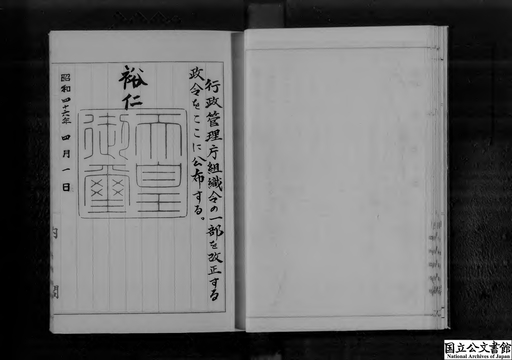 行政管理庁組織令の一部を改正する
政令をここに公布する。
裕仁
天皇
御璽
昭和四十六年四月一日
国立公文書館
National Archives of Japan